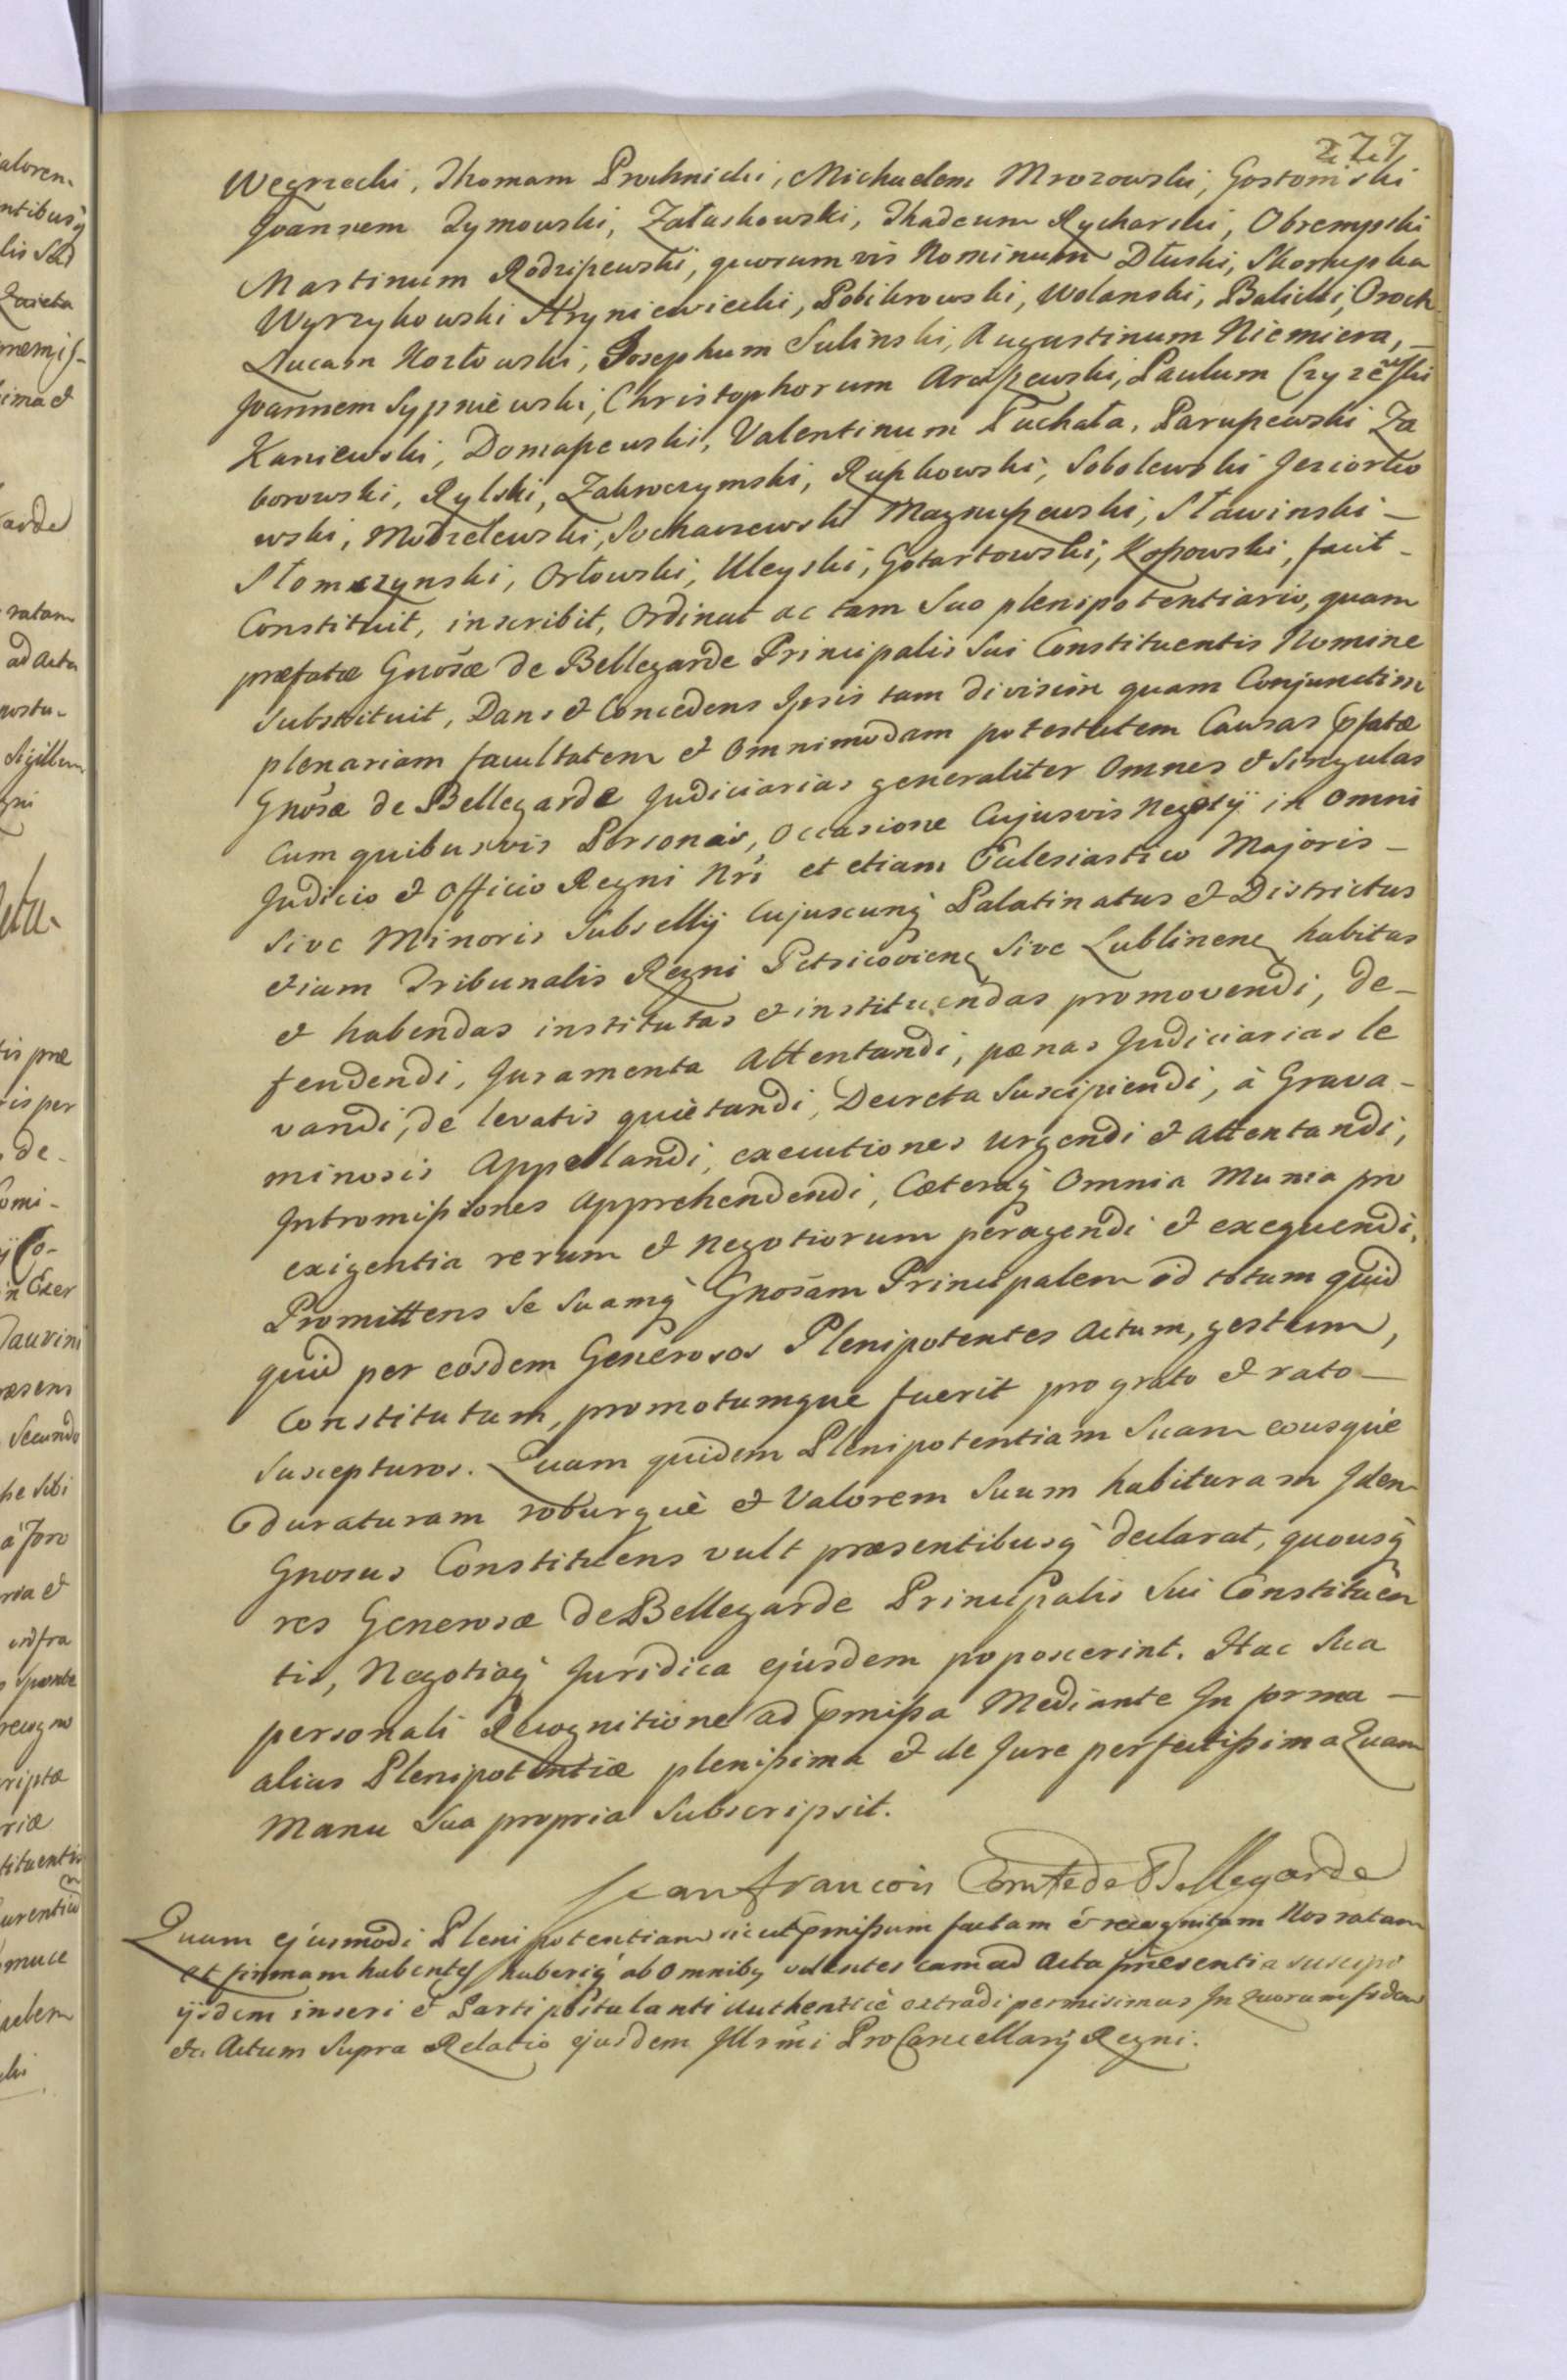 277
Węgrzecki, Thomam Prochnicki, Michaelem Mrozowski, Gostomski
Joannem Tymowski, Załuskowski, Thadeum Rycharski, Obrempski
Martinum Rodzißewski, quorumvis Nominum Dłuski, Skorupka
Wyrzykowski Hryniewiecki, Pobikrowski, Wolanski, Balicki, Oroch
Lucam Kozłowski, Josephum Sulinski, Augustinum Niemiera, –
Joannem Sypniewski, Christophorum Araßewski, Paulum Czyzewski
Kaniewski, Domaßewski, Valentinum Puchała, Parußewski Za
borowski, Rylski, Zakroczymski, Rupkowski, Sobolewski Jeziorko
wski, Modzelewski, Sochaczewski Magnußewski, Sławinski –
Słomczynski, Orłowski, Uleyski, Gotartowski, Koßowski, facit –
Constituit, inscribit, Ordinat ac tam Suo plenipotentiario, quam
præfatæ Gnosæ de Bellegarde Principalis Sui Constituentis Nomine
Substituit, Dans & Concedens Ipsis tam divisim quam Conjunctim
plenariam facultatem & omnimodam potestatem Causas pfatæ
Gnosæ de Bellegarde Judiciarias generaliter Omnes & Singulas
Cum quibusvis Personis, Occasione Cujusvis Negotij in omni
Judicio & Officio Regni Nri et etiam Eclesiastico Majoris –
Sive Minoris Subsellij Cujuscunq Palatinatus & Districtus
etiam Tribunalis Regni Petricovien Sive Lublinen habitas
& habendas institutas & instituendas promovendi, de–
fendendi, Juramenta Attentandi, pænas Judiciarias le
vandi, de levatis quiètandi, Decreta Suscipiendi, à Grava–
minosis Appellandi, executiones urgendi & attentandi,
Intromißiones apprehendendi, Cæteraq Omnia Munia pro
exigentia rerum & negotiorum peragendi & exequendi.
Promittens Se Suamq Gnosam Principalem id totum quid
quid per eosdem Generosos Plenipotentes Actum, gestum,
Constitutum, promotumque fuerit pro grato & rato –
Suscepturos. Quam quidem Plenipotentiam Suam eousque
duraturam roburquè & Valorem Suum habituram Idem
Gnosus Constituens vult præsentibusq declarat, quousq
res Generosæ de Bellegarde Principalis Sui Constituen
tis, Negotiaq Juridica ejusdem poposcerint. Hac Sua
personali Recognitione ad pmißa Mediante In forma –
alius Plenipotentiæ plenißima & de Jure perfectißima Quam
Manu Sua propria Subscripsit.
Jean françois Comte de Bellegarde
Quam ejusmodi Plenipotentiam sicut pmißum factam & recognitam Nos ratam
et firmam habentes haberiq ab omnibq volentes eam ad Acta præsentia suscipi
ijsdem inseri & Parti postulanti authenticè extradi permisimus In quorum fidem
&c. Actum Supra Relatio ejusdem Illrmi ProCancellarij Regni.